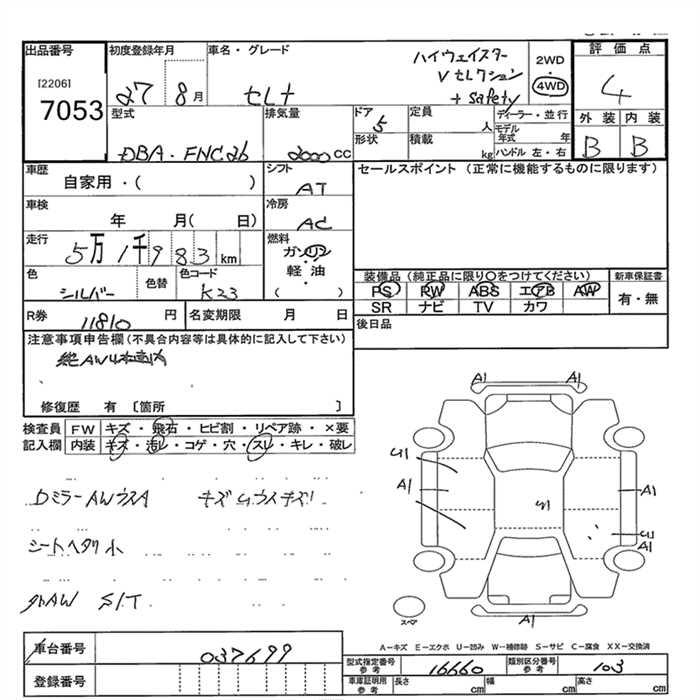 出品番号 初度登録年月 車名・グレード ハイウェイスター 2WD 評価点
[2206] 27 8月 セレナ Vセレクション 4WD 4
7053 + Safety
型式 排気量 ドア 5 定員 人 ディーラー・並行 外装 内装
DBA・FNC26 2000cc 形状 積載 kg モデル年式 年 B B
ハンドル 左・右
車歴 シフト セールスポイント (正常に機能するものに限ります)
自家用・( ) AT
車検 冷房
年 月( 日) AC
走行 燃料
5万1千983km ガソリン
軽・油
色 色替 色コード ( ) 装備品 (純正品に限り○をつけてください) 新車保証書
シルバー K23 PS PW ABS エアB AW 有・無
SR ナビ TV カワ
R券 11810 円 名変期限 月 日 後日品
注意事項申告欄(不具合内容等は具体的に記入して下さい)
修復歴 有 〔箇所 〕
検査員 FW キズ・飛石・ヒビ割・リペア跡・×要
記入欄 内装 キズ・汚レ・コゲ・穴・スレ・キレ・破レ
A1 A1
U1
A1 U1 A1
A1
A1
DミラーAWウスA
シートヘタリ小
S/T
スペア
A-キズ E-エクボ U-凹み W-補修跡 S-サビ C-腐食 XX-交換済
車台番号 037699
型式指定番号 参考 16660 類別区分番号 参考 103
登録番号 車庫証明用 参考 長さ cm 幅 cm 高さ cm